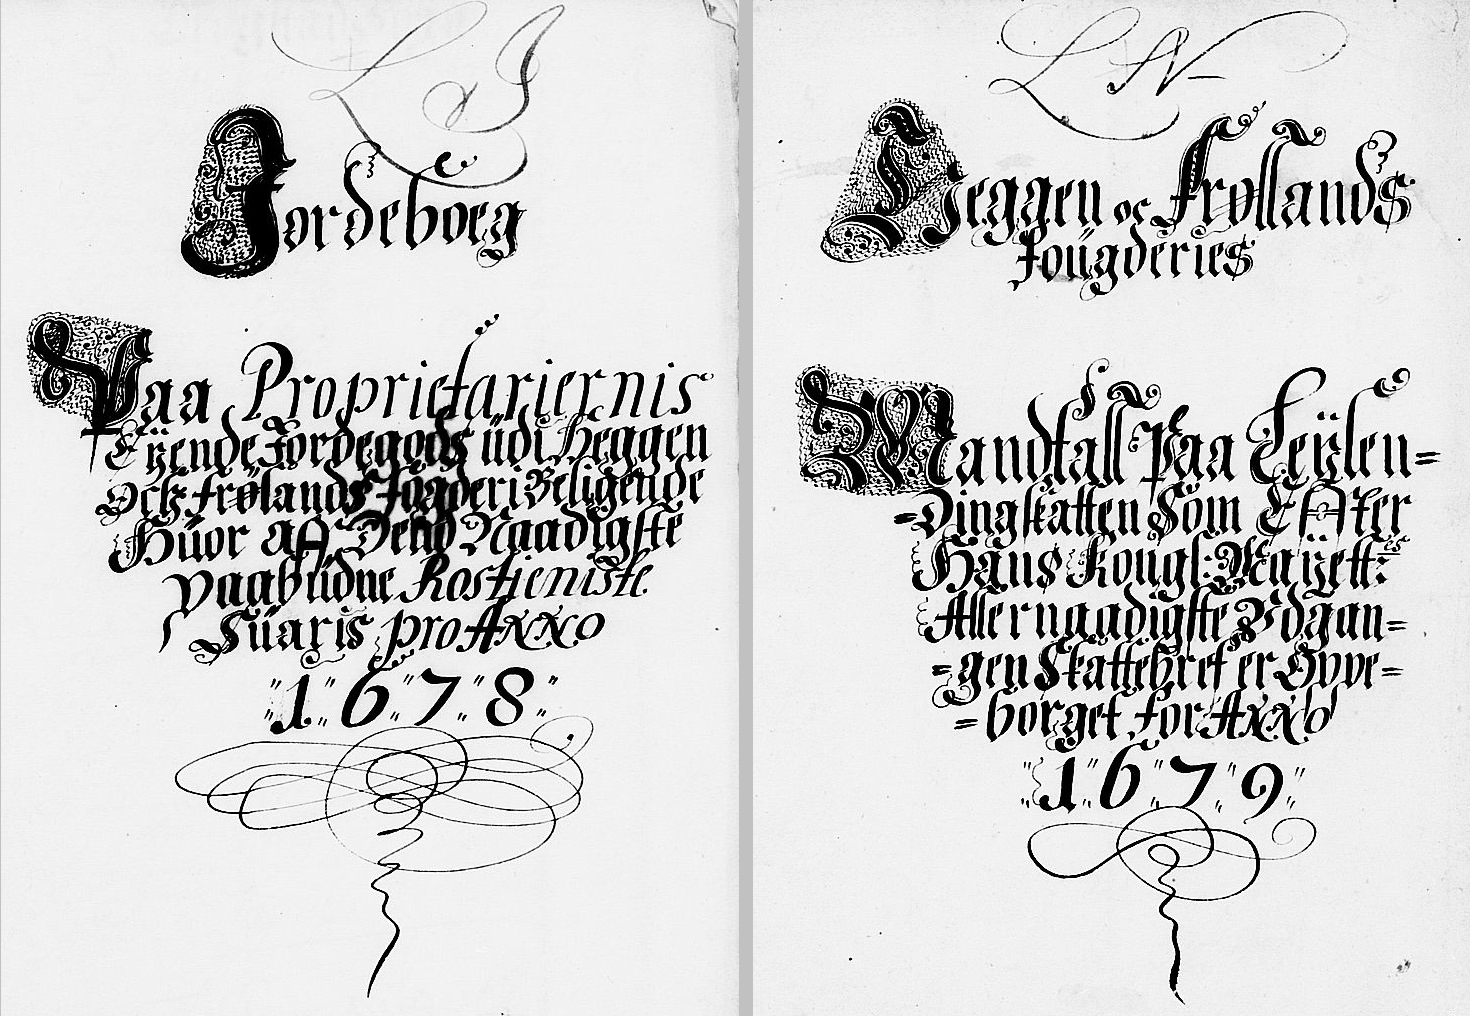 L I
Jordeboeg
Paa Proprietariernis
Eÿende Jordegods üdi Heggen
Och Frølands Fogderi Beligende
Hüor aff Dend Naadigste
Paabüdne Rostieniste
Süaris pro Anno
"1"6"7"8"
L N
Heggen oc Frøllands
Foügderies
Mandtall Paa Leÿlen=
=Dingskatten Som Effter
Hans Kongl: Maÿett:es
Allernaadigste Vdgan=
=gen Skattebref er Oppe=
=borget for Anno
"1"6"7"9"